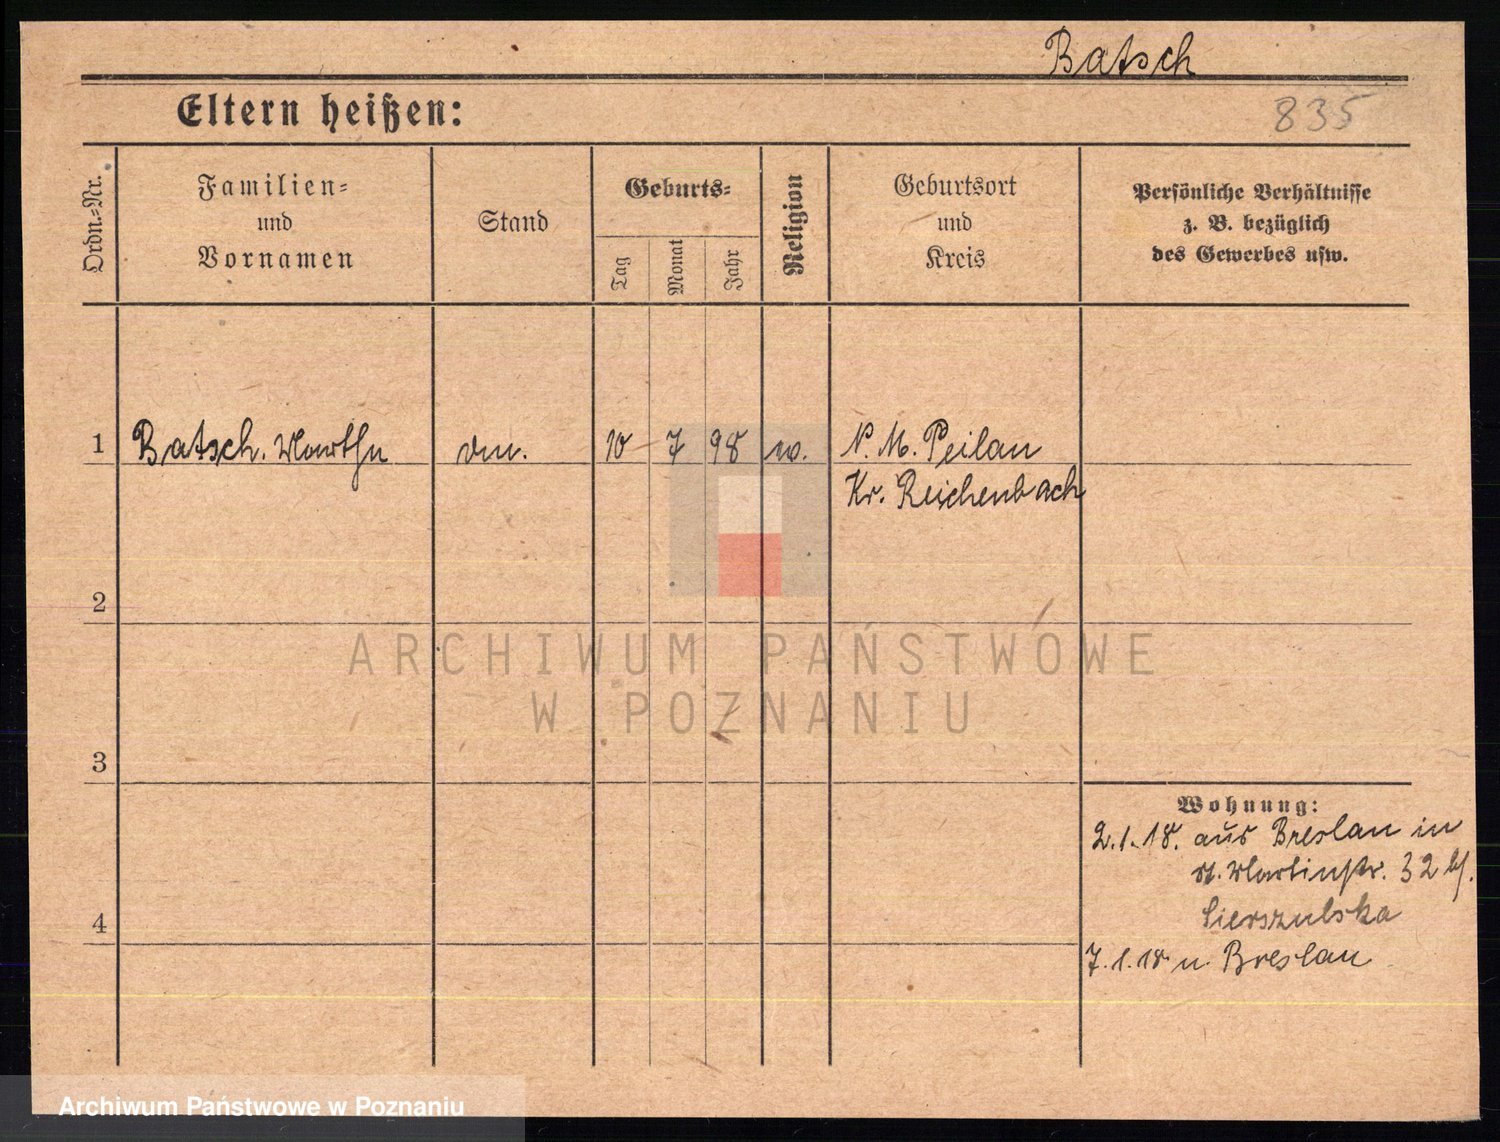 Batsch
Eltern heißen:
835
Ordn.=Nr.
Familien=
und
Vornamen
Stand
Geburts=
Tag
Monat
Jahr
Religion
Geburtsort
und
Kreis
Persönliche Verhältnisse
z. B. bezüglich
des Gewerbes usw.
1
Batsch. Martha
10 7 98
N. M. Peilau
Kr. Reichenbach
2
3
4
Wohnung:
2.1.18. aus Breslau in
St. Martinstr. 32 bj.
Sierszulska
7.1.18 n. Breslau
ARCHIWUM PAŃSTWOWE
W POZNANIU
Archiwum Państwowe w Poznaniu